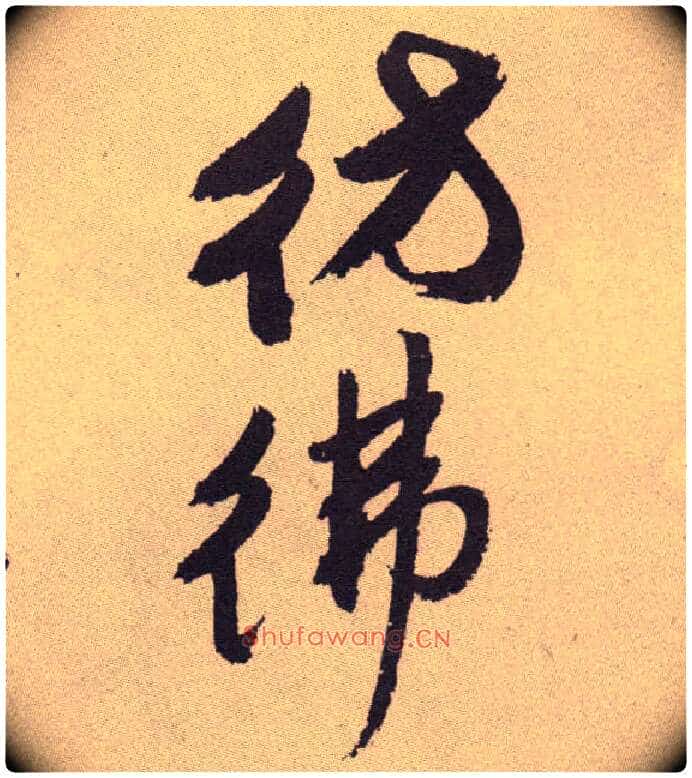 彷
彿
Shufawang.CN